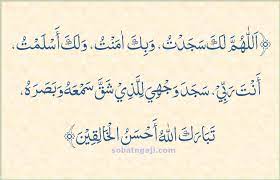 ﴿اَللّٰهُمَّ لَكَ سَجَدْتُ، وَبِكَ اٰمَنْتُ، وَلَكَ أَسْلَمْتُ،
أَنْتَ رَبِّيْ، سَجَدَ وَجْهِيَ لِلَّذِيْ شَقَّ سَمْعَهُ وَبَصَرَهُ،
تَبَارَكَ اللهُ أَحْسَنُ الْخَالِقِيْنَ﴾
sobatngaji.com